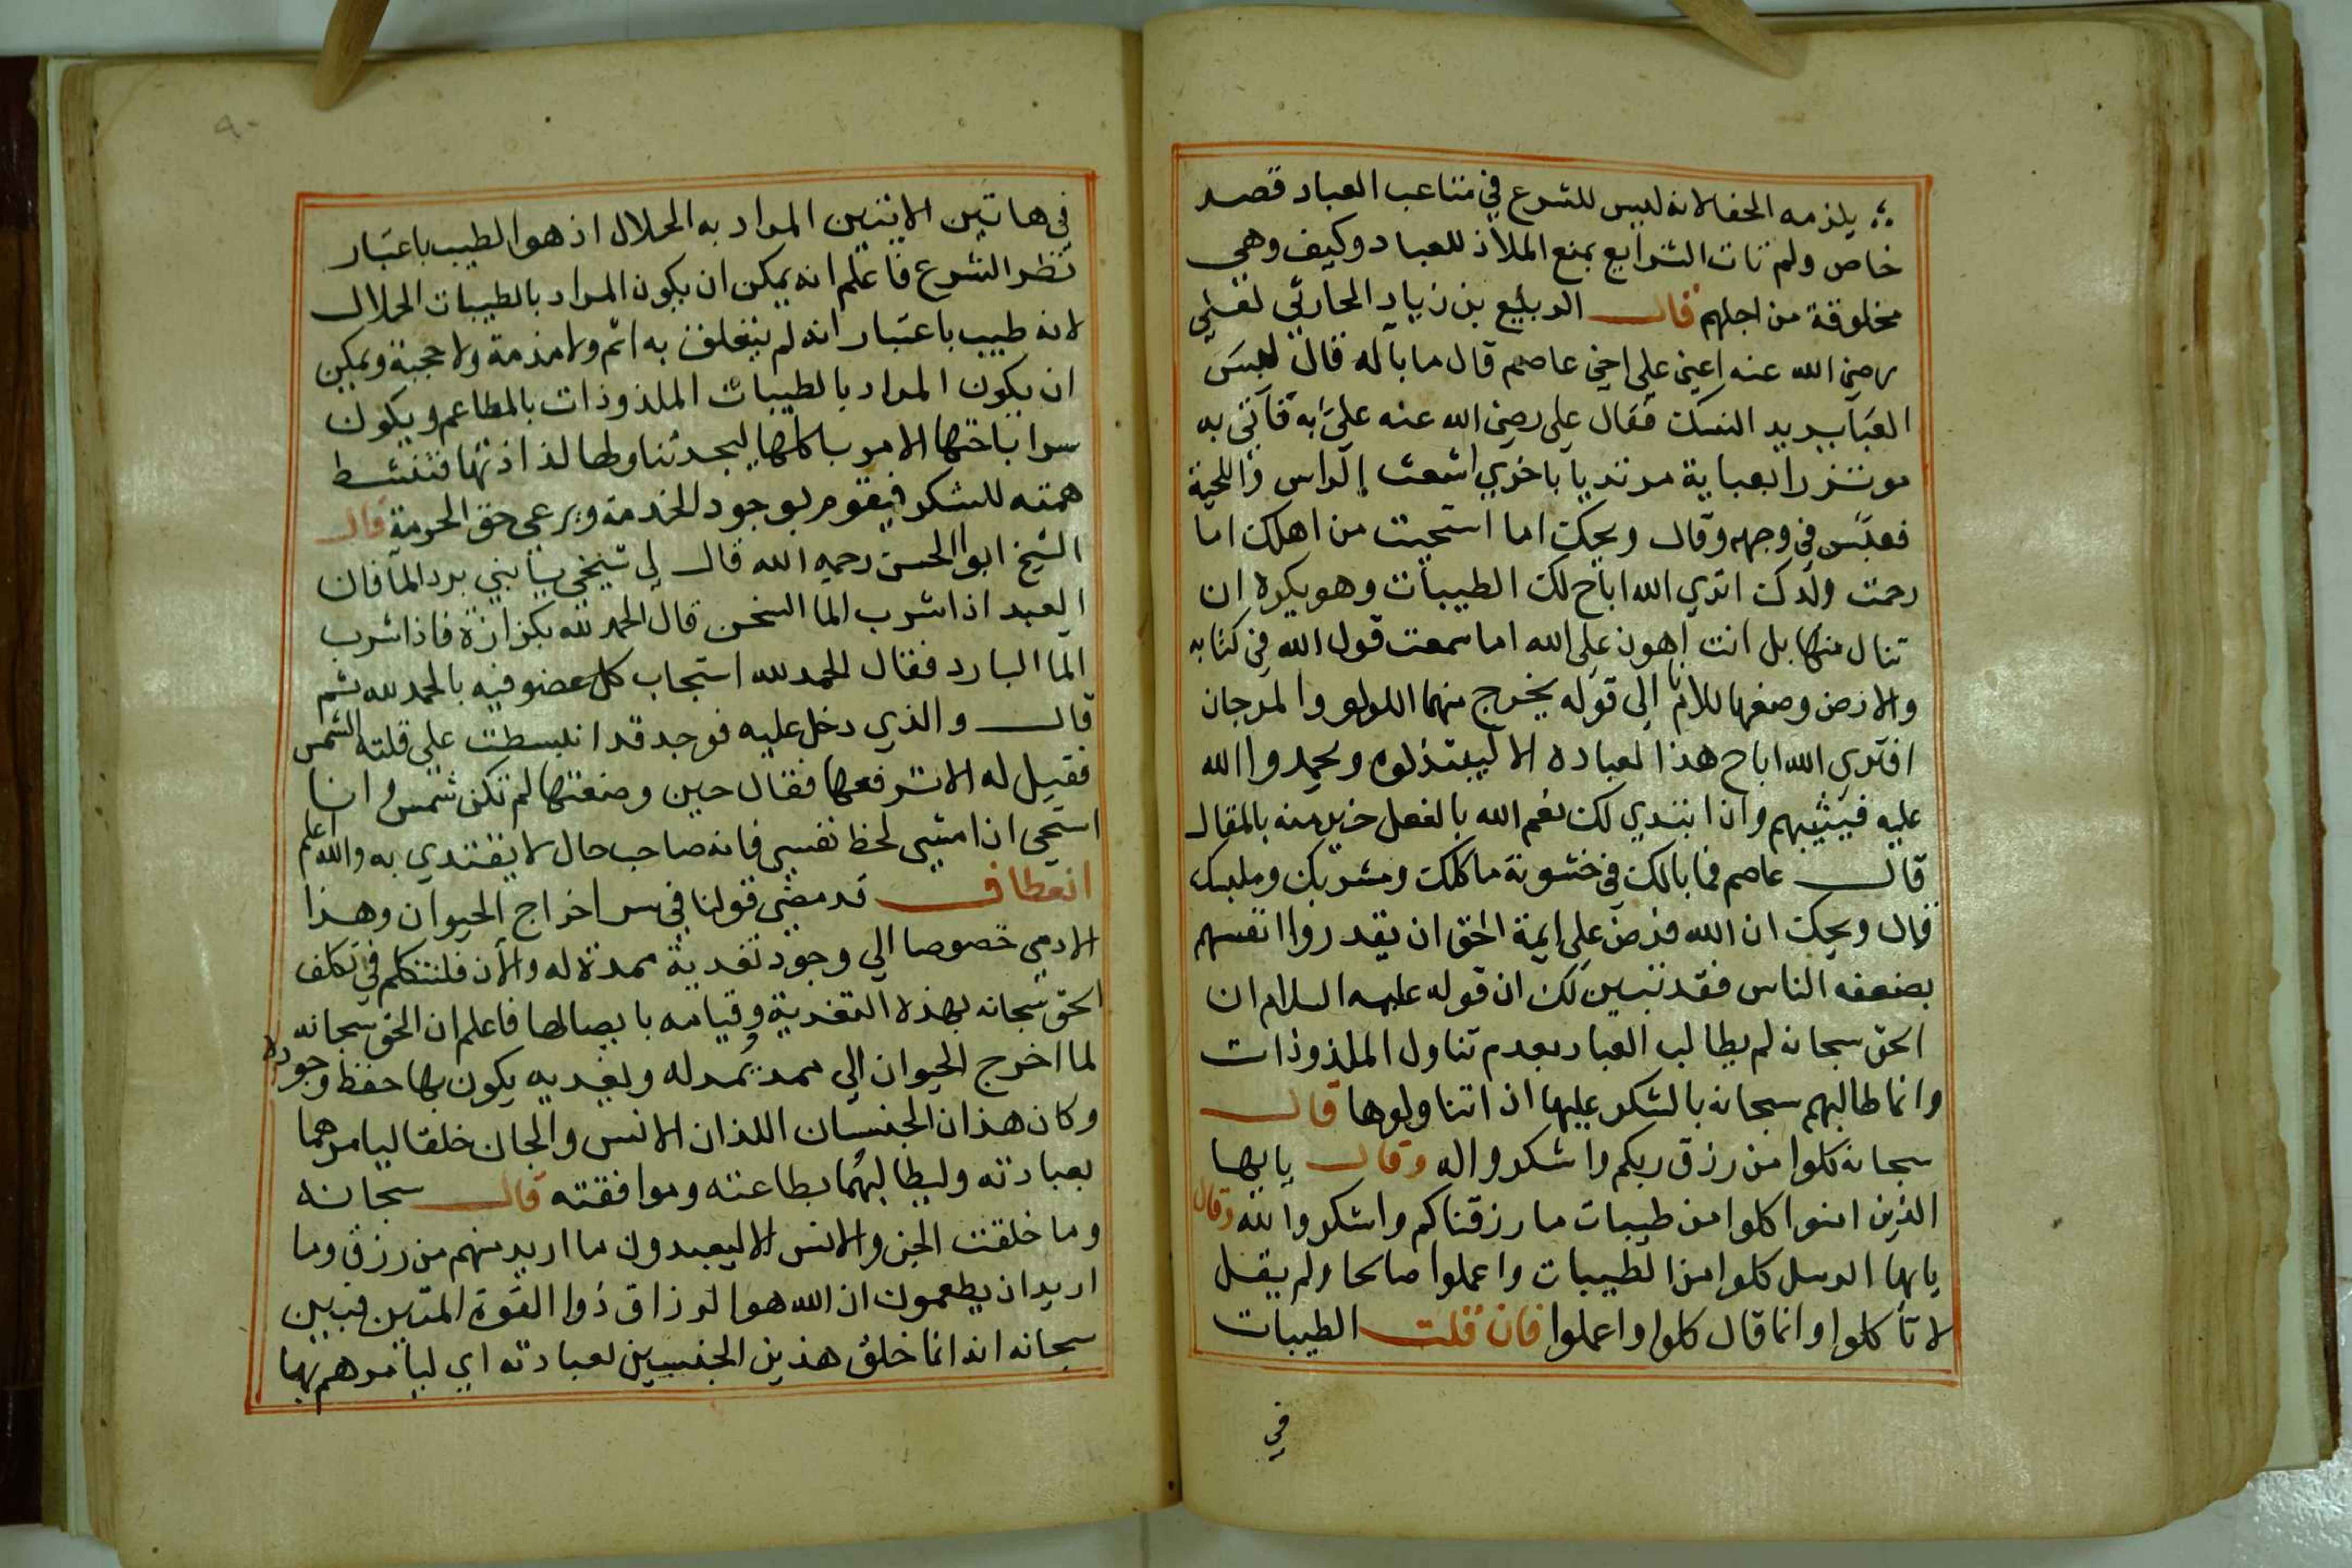 يلزمه الحفا لانه ليس للشرع في متاعب العباد قصد
خاص ولم تات الشرايع بمنع الملاذ للعباد وكيف وهي
مخلوقة من اجلهم قال الربيع بن زياد الحارثي لعلي
رضي الله عنه اعني على اخي عاصم قال ما باله قال لبس
العبا يريد النسك فقال علي رضي الله عنه عليّ به فاتي به
موتزرا بعباية مرتديا باخري اشعث الراس واللحية
فعبّس في وجهه وقال ويحك اما استحيت من اهلك اما
رحمت ولدك اتري الله اباح لك الطيبات وهو يكره ان
تنال منها بل انت اهون على الله اما سمعت قول الله في كتابه
والارض وضعها للانام الى قوله يخرج منهما اللولو والمرجان
افتري الله اباح هذا لعباده الا ليبتذلوه ويحمدوا الله
عليه فيثيبهم وان ابتدي لك نعم الله بالفعل خير منه بالمقال
قال عاصم فما بالك في خشونة ماكلك ومشربك وملبسك
قال ويحك ان الله فرض على ايمة الحق ان يقدروا انفسهم
بضعفه الناس فقد تبين لك ان قوله عليه السلام ان
الحق سبحانه لم يطالب العباد بعدم تناول الملذوذات
وانما طالبهم سبحانه بالشكر عليها اذ اتناولوها قال
سبحانه كلوا من رزق ربكم واشكروا له وقال يايها
الذين امنوا كلوا من طيبات ما رزقناكم واشكروا لله وقال
يايها الرسل كلوا من الطيبات واعملوا صالحا ولم يقل
لا تاكلوا وانما قال كلوا واعملوا فان قلت الطيبات
في
٩٠
في هاتين الايتين المراد به الحلال اذ هو الطيب باعتبار
نظر الشرع فاعلم انه يمكن ان يكون المراد بالطيبات الحلال
لانه طيب باعتبار انه لم يتعلق به اثم ولا مذمة ولا حجبة ويمكن
ان يكون المراد بالطيبات الملذوذات بالمطاعم ويكون
سر اباحتها الامر باكلها ليجد تناولها لذاذتها فتنشط
همته للشكر فيقوم بوجود الخدمة ويرعي حق الحرمة قال
الشيخ ابو الحسن رحمه الله قال لي شيخي يا بني برد الما فان
العبد اذا شرب الما السخن قال الحمد لله بكزازة فاذا شرب
الما البارد فقال الحمد لله استجاب كل عضو فيه بالحمد لله ثم
قال والذي دخل عليه فوجد قد انبسطت على قلته الشمس
فقيل له الا ترفعها فقال حين وضعتها لم تكن شمس وانا
استحي ان امشي لحظ نفسي فانه صاحب حال لا يقتدي به والله اعلم
انعطاف قد مضي قولنا في سر اخراج الحيوان وهذا
الادمي خصوصا الي وجود تغدية ممدة له والان فلنتكلم في تكلف
الحق سبحانه بهذه التغدية وقيامه بايصالها فاعلم ان الحق سبحانه
لما اخرج الحيوان الي ممد يمد له وتغديه يكون بها حفظ وجوده
وكان هذان الجنسان اللذان الانس والجان خلقا ليامرهما
بعبادته وليطالبهما بطاعته وموافقته قال سبحانه
وما خلقت الجن والانس الا ليعبدون ما اريد منهم من رزق وما
اريد ان يطعمون ان الله هو الرزاق ذوا القوة المتين فبين
سبحانه انه انما خلق هذين الجنسين لعبادته اي ليامرهم بها